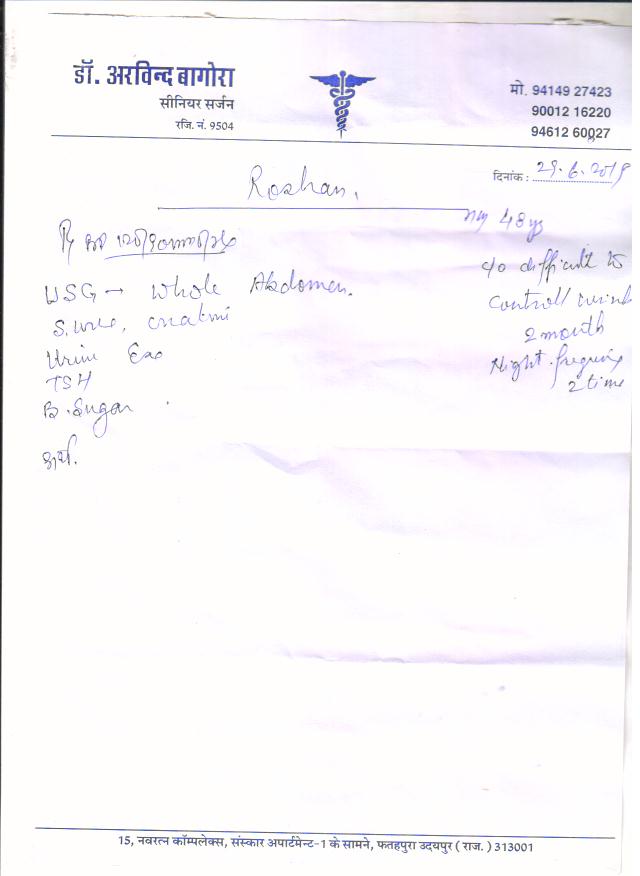 डॉ. अरविन्द बागोरा
सीनियर सर्जन
रजि. नं. 9504
मो. 94149 27423
90012 16220
94612 60027
दिनांक : 29.6.2019
Roshan.
48 ys
BP 120/90
c/o difficult to
USG → Whole Abdomen.
Controll
S. 
2 month
Urine
Night
TSH
2 time
B. Sugar
15, नवरत्न कॉम्पलेक्स, संस्कार अपार्टमेन्ट-1 के सामने, फतहपुरा उदयपुर ( राज. ) 313001